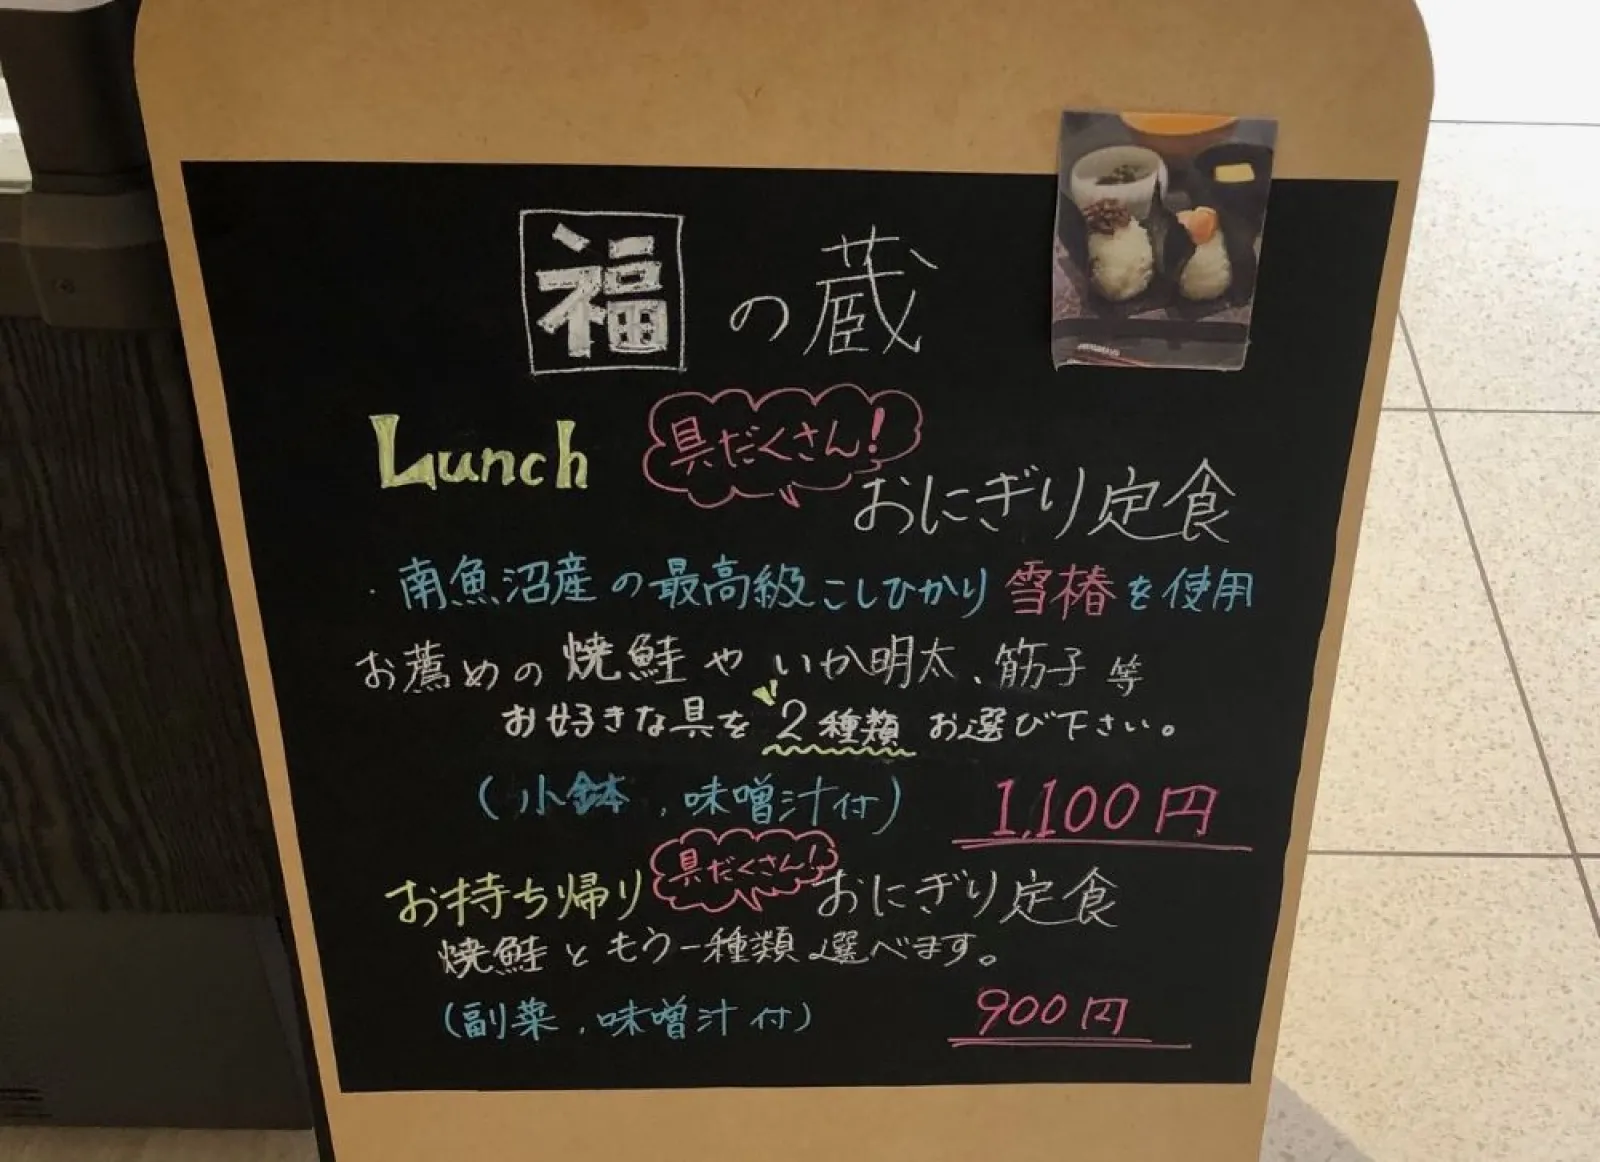 福の蔵
Lunch 具だくさん! おにぎり定食
・南魚沼産の最高級こしひかり雪椿を使用
お薦めの焼鮭やいか明太、筋子等
お好きな具を2種類お選び下さい。
(小鉢、味噌汁付) 1,100円
お持ち帰り 具だくさん! おにぎり定食
焼鮭ともう一種類選べます。
(副菜、味噌汁付) 900円